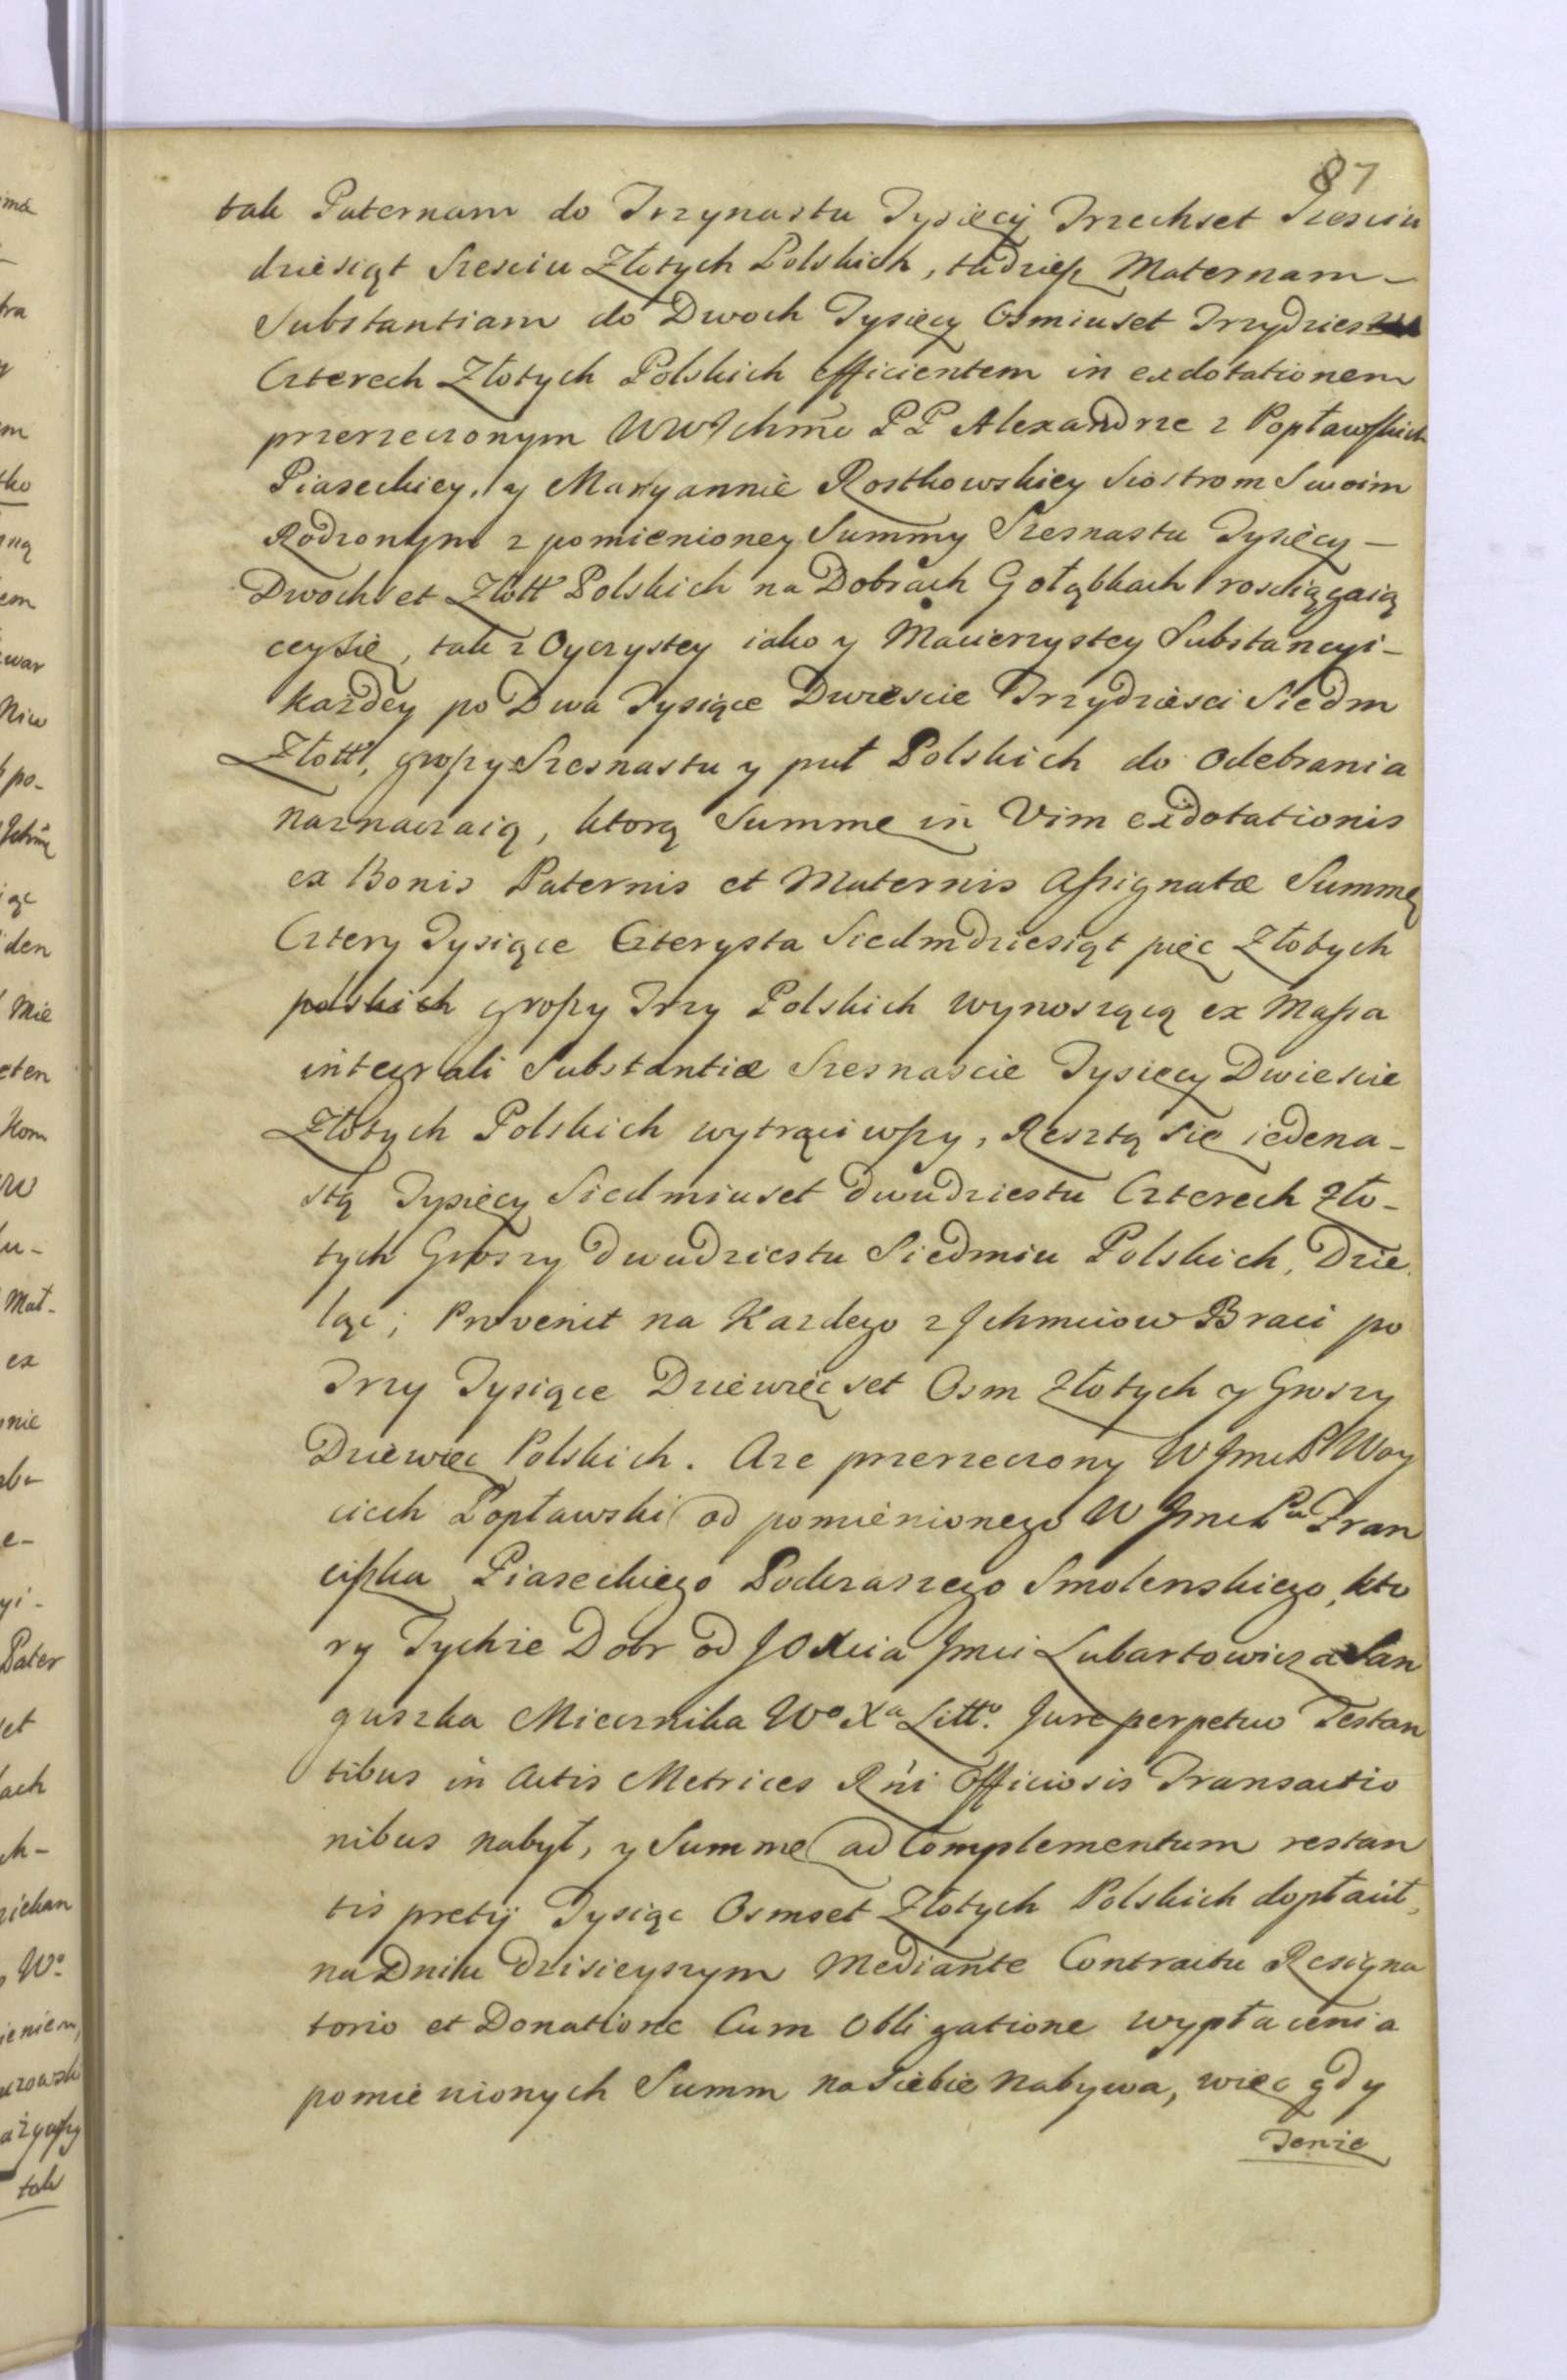 87
tak Paternam do Trzynastu Tysięcy Trzechset Szesciu
dziesiąt Szesciu Złotych Polskich, tudzież Maternam -
Substantiam do Dwoch Tysięcy Osmiuset Trzydziestu
Czterech Złotych Polskich efficientem in exdotationem
przerzeczonym WWJchmc PP Alexandrze z Popławskich
Piaseckiey, y Maryannie Rostkowskiey Siostrom Swoim
Rodzonym z pomienioney Summy Szesnastu Tysięcy -
Dwochset Złott Polskich na Dobrach Gołąbkach rosciągaią
cey się, tak z Oyczystey iako y Macierzystey Substancyi -
każdey po Dwa Tysiące Dwiescie Trzydziesci Siedm
Złott, groszy Szesnastu y puł Polskich do odebrania
naznaczaią, ktorą Summę in Vim exdotationis
ex Bonis Paternis et Maternis Assignatæ Summę
Cztery Tysiące Czterysta Siedmdziesiąt pięc Złotych
polskich groszy Trzy Polskich wynoszącą ex Massa
integrali Substantiæ Szesnascie Tysięcy Dwiescie
Złotych Polskich wytrąciwszy, Resztą się iedena-
stą Tysięcy Siedmiuset dwudziestu Czterech Zło-
tych Groszy dwudziestu Siedmiu Polskich, Dzie
ląc; Provenit na Kazdego z Jchmciow Braci po
Trzy Tysiące Dziewięcset Osm Złotych y Groszy
Dziewięc Polskich. Aze przerzeczony WJmcP Woy
ciech Popławski od pomienionego W JmcPa Fran
ciszka Piaseckiego Podczaszego Smolenskiego, kto
ry Tychże Dobr od JO Xcia Jmci Lubartowicza San
guszka Miecznika Wo Xa Litto. Jure perpetuo Testan
tibus in Actis Metrices Rni Officiosis Transactio
nibus nabył, y Summę ad Complementum restan
tis pretij Tysiąc Osmset Złotych Polskich dopłacił,
na Dniu dzisieyszym Mediante Contractu Resigna
torio et Donatione Cum Obligatione wypłacenia
pomienionych Summ na siebie nabywa, więc gdy
Tenże